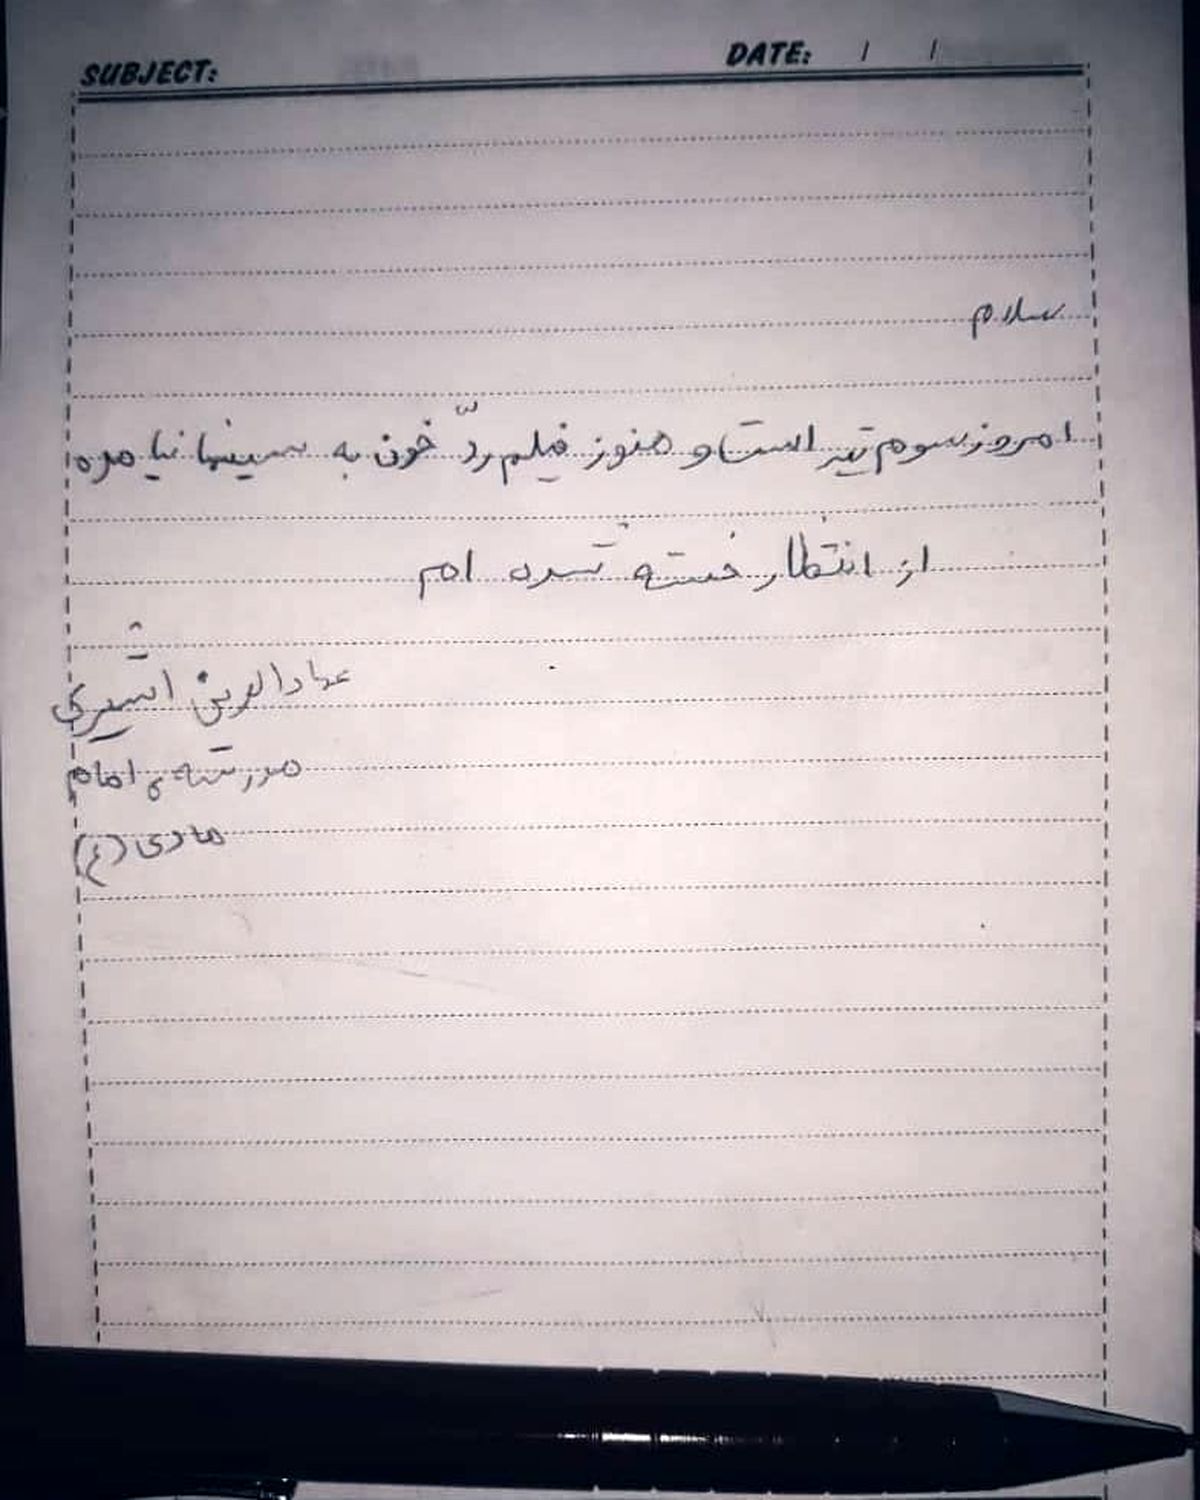 SUBJECT: DATE: / /
سلام
امروز سوم تیر است و هنوز فیلم ردّ خون به سینما نیامده
از انتظار خسته شده ام
عمادالدین اثیری
مدرسه ی امام
هادی (ع)